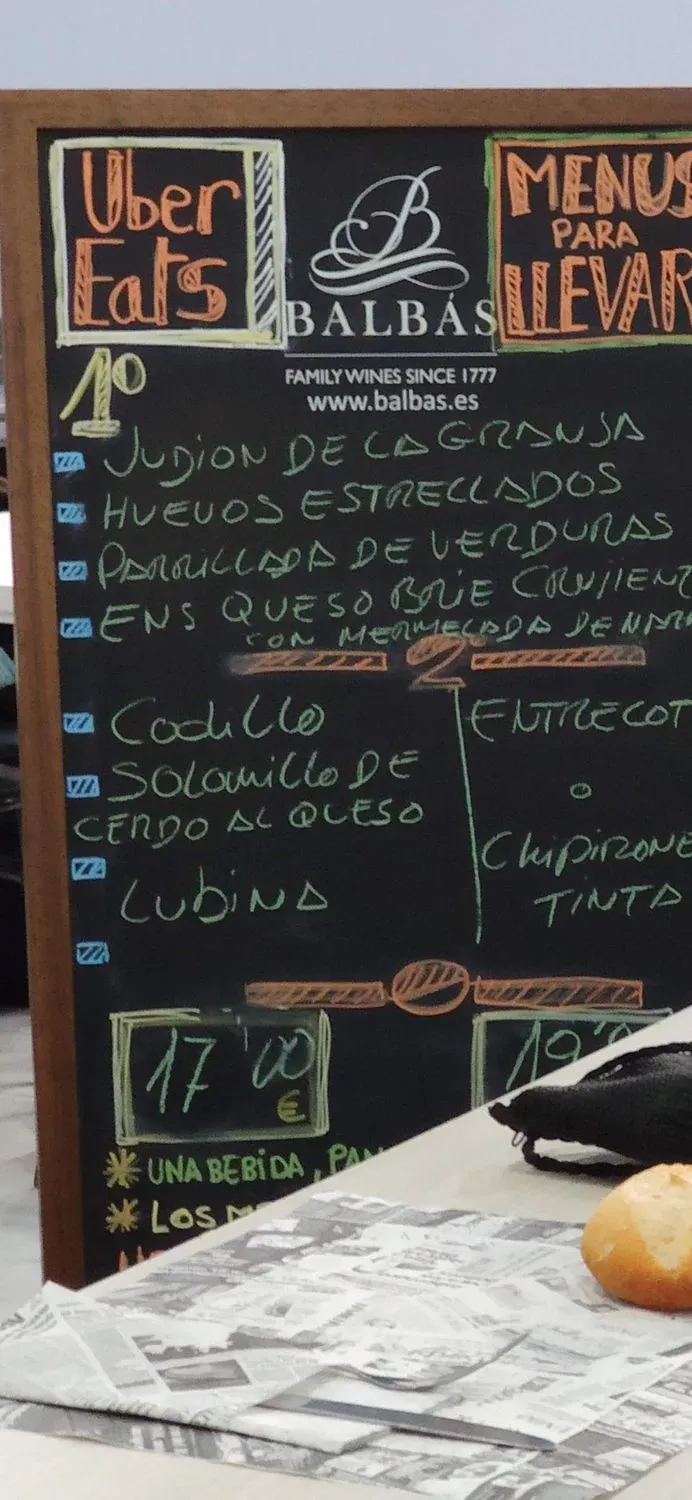 Uber
Eats
BALBÁS
FAMILY WINES SINCE 1777
www.balbas.es
MENUS
PARA
LLEVAR
1º
JUDION DE LA GRANJA
HUEVOS ESTRELLADOS
PARRILLADA DE VERDURAS
ENS QUESO BRIE
CON MERMELADA DE
2
Codillo
SOLOMILLO DE
CERDO AL QUESO
LUBINA
ENTRECOT
o
CHIPIRONE
TINTA
17'00
€
19'
UNA BEBIDA, PAN
LOS